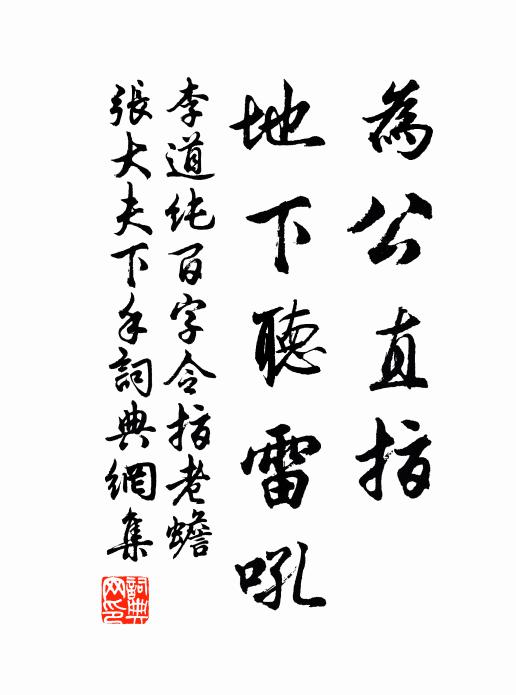 為公直指
地下聽雷吼
李道纯百字令指老蟾
張大夫下手詞典網集
詞典网印